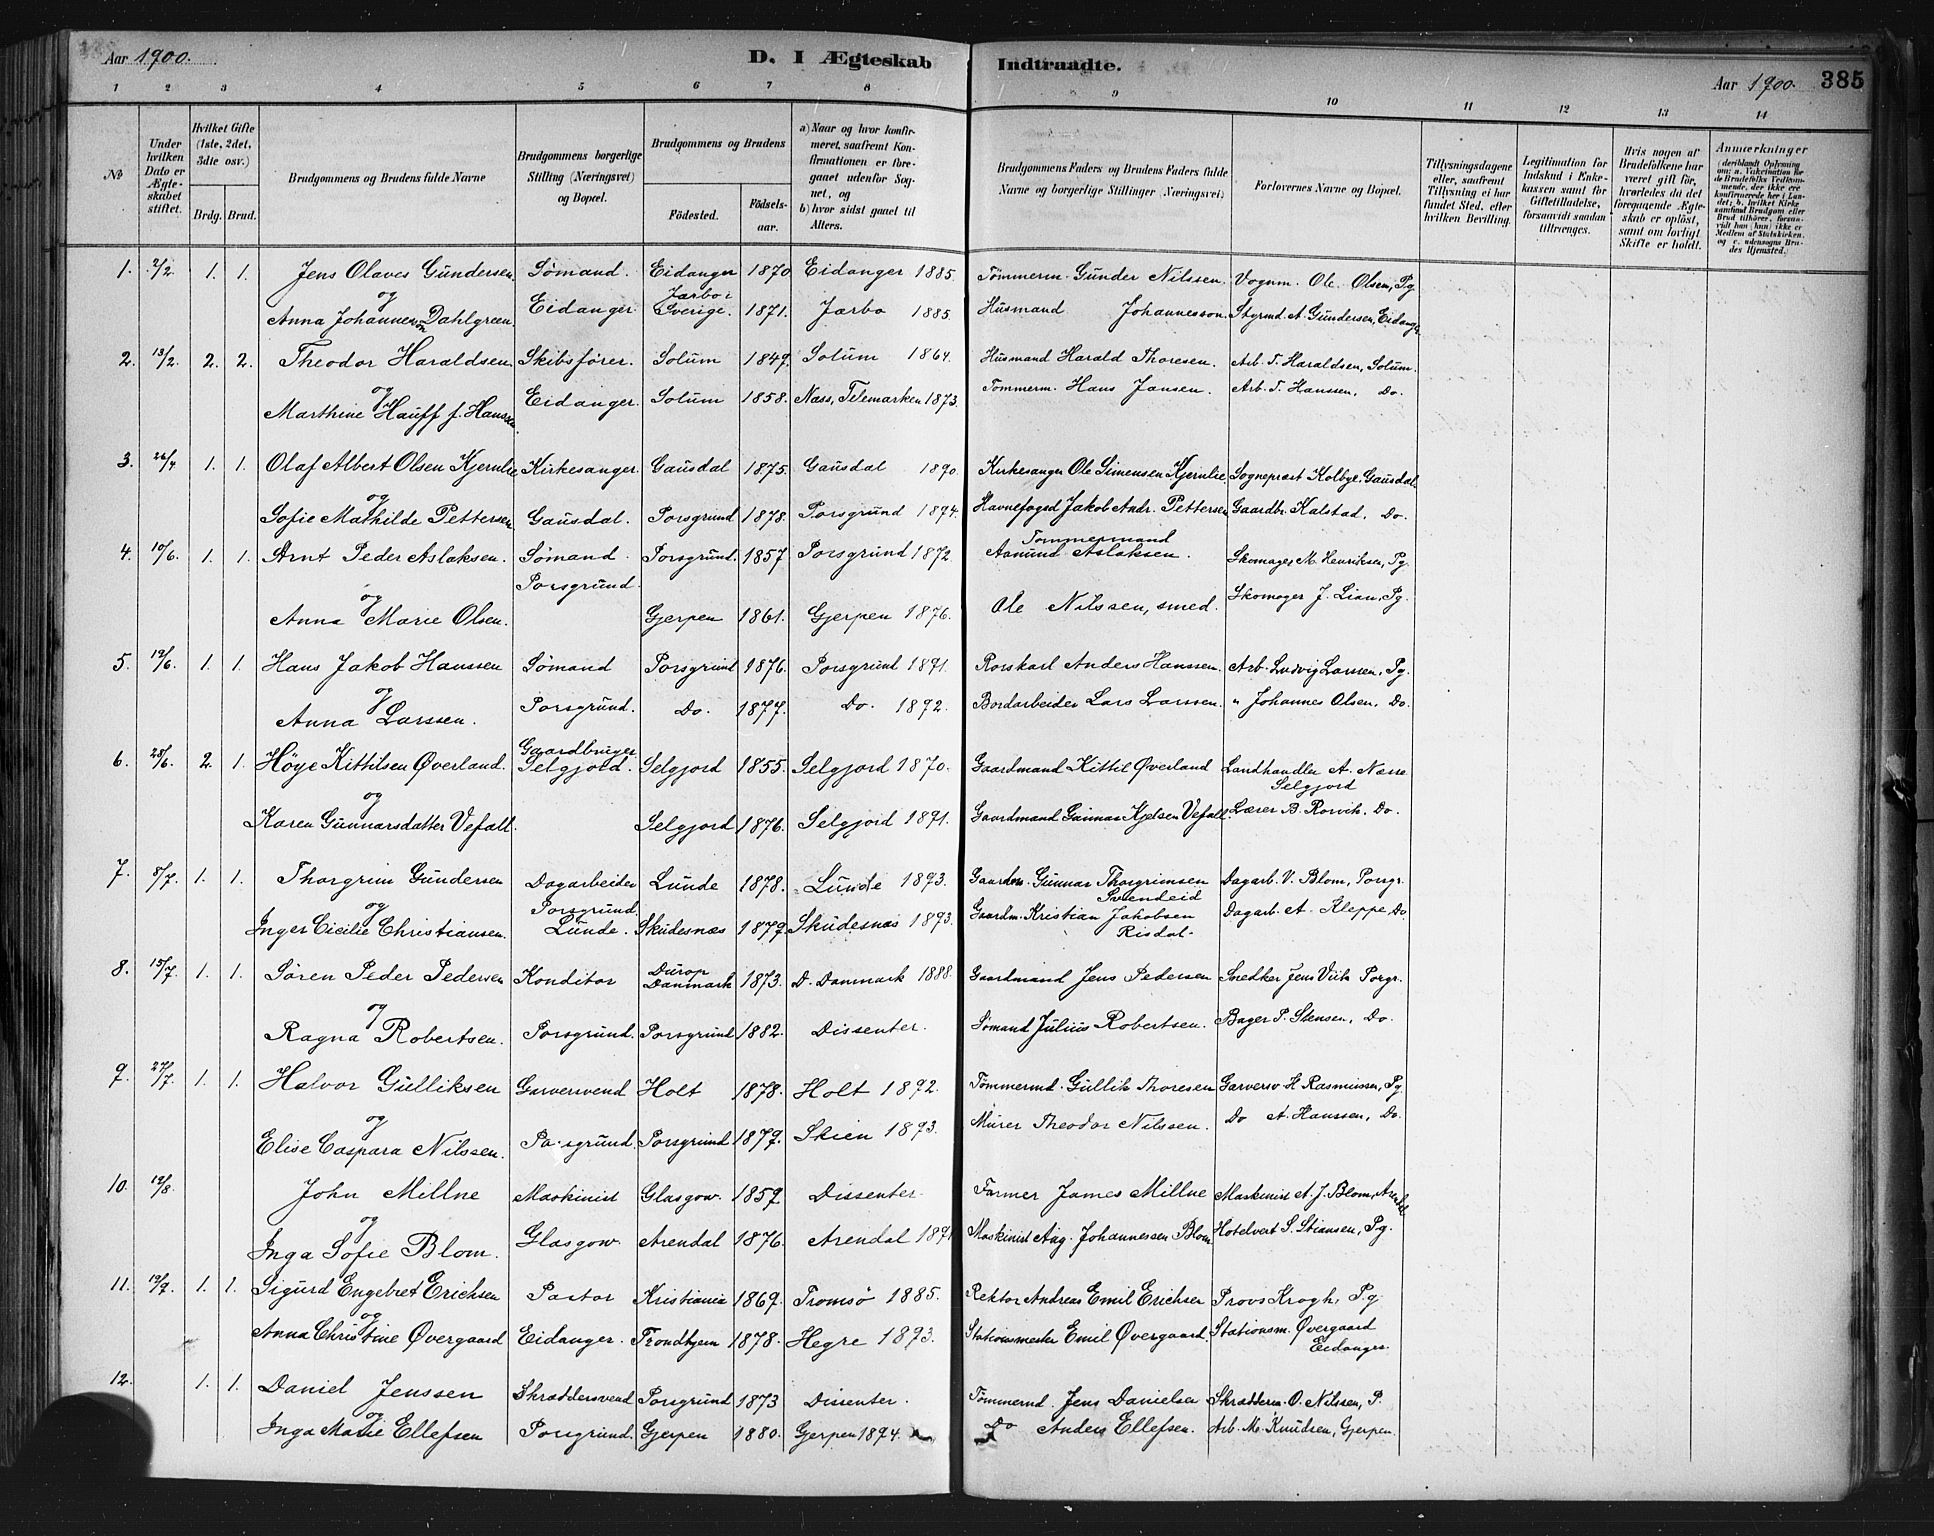 Aar 1900. D. I Ægteskab Indtraadte. Aar 1900. 385
1 2 3 4 5 6 7 8 9 10 11 12 13 14
No
Under hvilken Dato er Ægteskabet stiftet.
Hvilket Gifte (1ste, 2det, 3die osv.)
Brdg. Brud.
Brudgommens og Brudens fulde Navne
Brudgommens borgerlige Stilling (Næringsvei) og Bopæl.
Brudgommens og Brudens
Födested. Födselsaar.
a) Naar og hvor konfirmeret, saafremt Konfirmationen er foregaaet udenfor Sognet, og
b) hvor sidst gaaet til Alters.
Brudgommens Faders og Brudens Faders fulde Navne og borgerlige Stillinger (Næringsvei)
Forlovernes Navne og Bopæl.
Tillysningsdagene eller, saafremt Tillysning ei har fundet Sted, efter hvilken Bevilling.
Legitimation for Indskud i Enkekassen samt for Giftetilladelse, forsaavidt saadan tiltrænges.
Hvis nogen af Brudefolkene har været gift för, hvorledes da det foregaaende Ægteskab er oplöst, samt om lovligt Skifte er holdt.
Anmærkninger
1. 2/2 1. 1. Jens Olaves Gundersen Sømand. Eidanger 1870 Eidanger 1885. Tömmerm. Gunder Nilssen. Vognm. Ole Olsen, Pg
og Jarbo i
Anna Johannesen Dahlgreen. Eidanger Sverige. 1871. Jarbo 1885. Husmand Johannesson. Styrmd. A. Gundersen, Eidanger
2. 13/2 2. 2. Theodor Haraldsen Skibsfører. Solum 1847. Solum 1864. Husmand Harald Thoresen. Arb. T. Haraldsen, Solum.
og
Marthine Hauff f. Hanssen Eidanger. Solum 1858. Næss, Telemarken 1873. Tömmerm. Hans Jansen. Arb. T. Hanssen, Do.
3. 26/4 1. 1. Olaf Albert Olsen Kjernlie Kirkesanger. Gausdal 1875. Gausdal 1890. Kirkesanger Ole Simensen Kjernlie. Sogneprest Kolbye, Gausdal.
og
Sofie Mathilde Pettersen Gausdal. Porsgrund 1878. Porsgrund 1894. Havnefoged Jakob Andr. Pettersen Gaardbr. Kalstad, Do.
4. 10/6. 1. 1. Arnt Peder Aslaksen. Sømand. Porsgrund. 1857 Porsgrund 1872 Tømmermand Aanund Aslaksen. Skomager M. Henriksen, Pg.
og Porsgrund.
Anna Marie Olsen. Gjerpen 1861. Gjerpen 1876. Ole Nilssen, smed. Skomager J. Lian, Pg.
5. 19/6. 1. 1. Hans Jakob Hanssen Sømand Porsgrund 1876. Porsgrund 1891. Rorskarl Anders Hanssen. Arb. Ludvig Larssen, Pg.
og
Anna Larssen. Porsgrund. Do. 1877. Do. 1892. Bordarbeider Lars Larssen. " Johannes Olsen, Do.
6. 28/6. 2. 1. Höye Kittilsen Øverland. Gaardbruger Selgjord. Selgjord 1855. Selgjord 1870. Gaardmand Kittil Øverland Landhandler A. Næsse Selgjord
og
Karen Gunnarsdatter Vefall. Selgjord 1876. Selgjord 1891. Gaardmand Gunnar Kjelsen Vefall. Lærer B. Rorvik. Do.
7. 8/7. 1. 1. Thorgrim Gundersen Dagarbeider Lunde 1878. Lunde 1893. Gaardm. Gunnar Thorgrimsen Svendeid Dagarb. V. Blom, Porsgr.
og Porsgrund.
Inger Cicilie Christiansen. Lunde. Skudesnæs 1879. Skudesnæs 1893. Gaardm. Kristian Jakobsen Risdal. Dagarb. A. Kleppe Do.
8. 15/7. 1. 1. Sören Peder Pedersen Konditor Durop Danmark 1873. D. Danmark 1888. Gaardmand Jens Pedersen Snedker Jens Viit Porgr.
og
Ragna Robertsen. Porsgrund. Porsgrund 1882. Dissenter. Sømand Julius Robertsen. Bager P. Stensen, Do.
9. 27/7. 1. 1. Halvor Gulliksen Garversvend Holt 1878. Holt 1892. Tömmermd. Gullik Thoresen Garversv H. Rasmussen, Pg.
og
Elise Caspara Nilssen. Porsgrund. Porsgrund 1879. Skien 1893. Murer Theodor Nilssen. Do A. Hanssen, Do.
10. 12/8. John Millne Maskinist Glasgow. 1859 Dissenter. Farmer James Millne Maskinist A. J. Blom, Arendal
og
Inga Sofie Blom. Glasgow. Arendal 1876. Arendal 1891 Maskinist Aug. Johannessen Blom. Hotelvert S. Stiansen, Pg.
11. 19/9. 1. 1. Sigurd Engebret Erichsen Pastor Kristiania 1869. Tromsö 1885. Rektor Andreas Emil Erichsen Provs Krogh, P.g.
og
Anna Christine Øvergaard Eidanger. Trondhjem 1878. Hegre 1893. Stationsmester Emil Øvergaard. Stationsm. Øvergaard Eidanger.
12. 1. 1. Daniel Jenssen Skræddersvend Porsgrund 1873 Dissenter. Tömmermd. Jens Danielsen Skrædderm. O. Nilssen, P.
og
Inga Marie Ellefsen Porsgrund. Gjerpen 1880. Gjerpen 1894. Do Anders Ellefsen. Arb. M. Knudsen, Gjerpen.